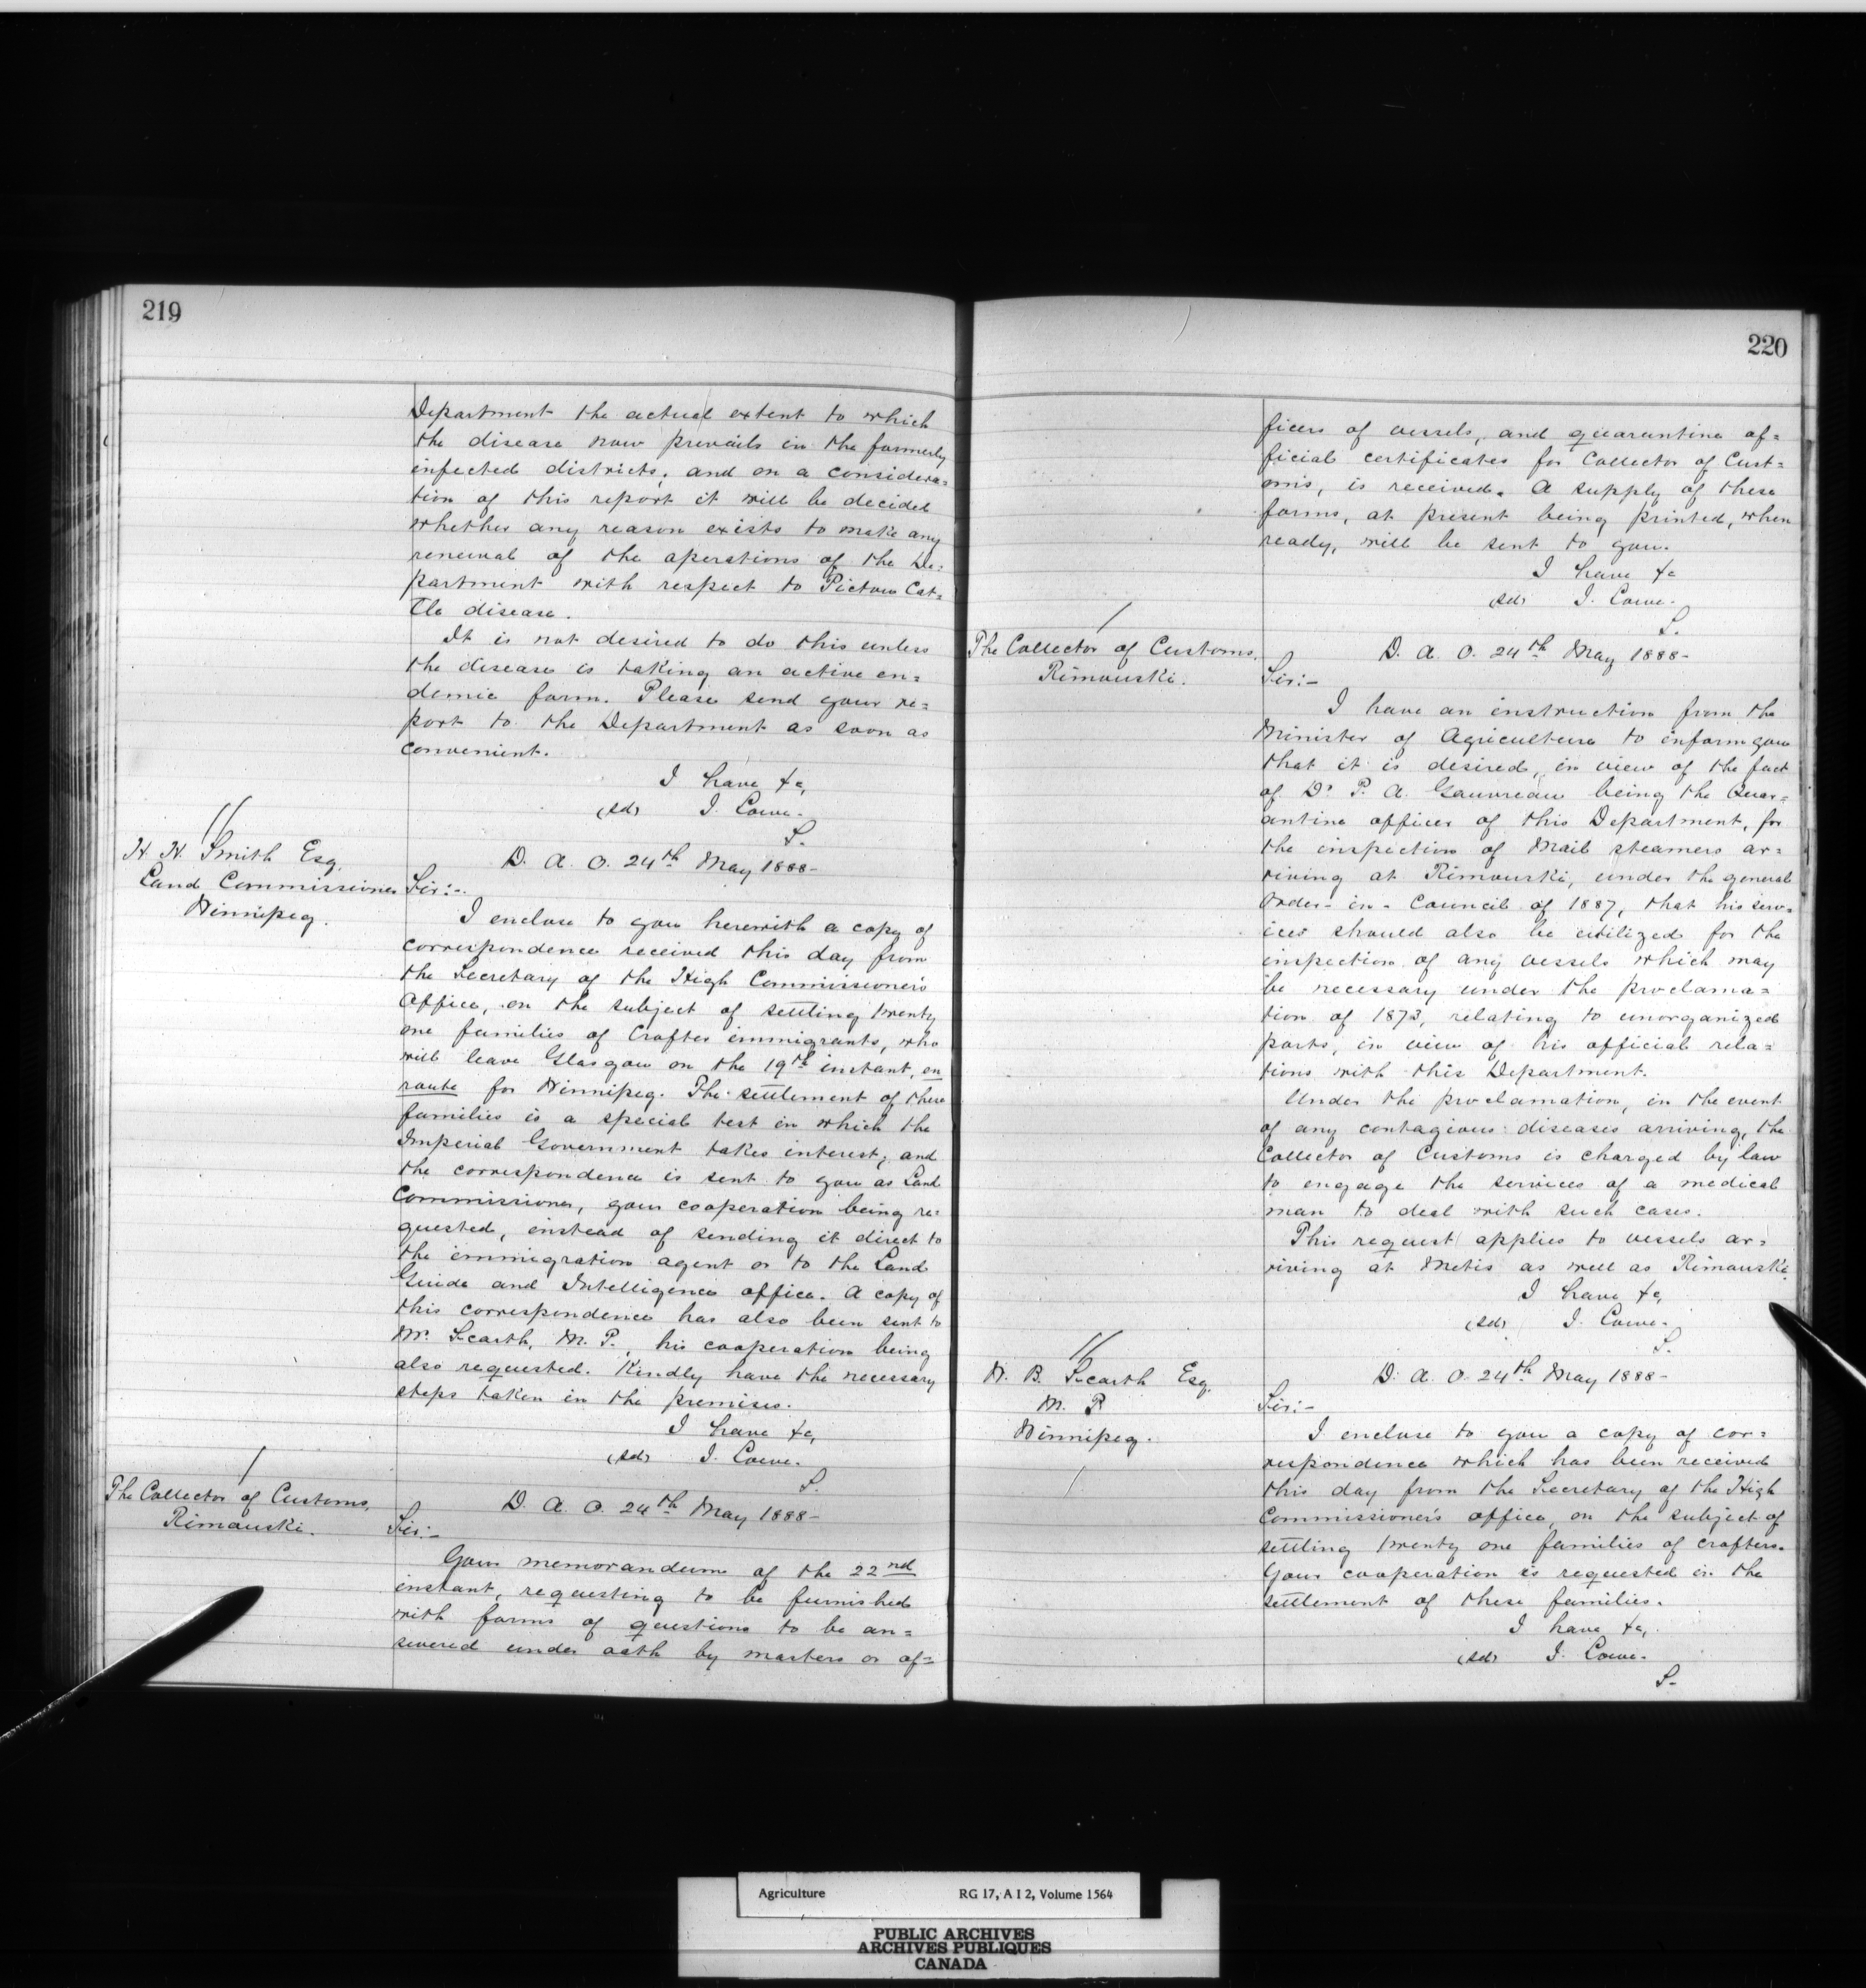 219
Department the actual extent to which
the disease now prevails in the formerly
infected districts, and on a considera=
tion of this report it will be decided
whether any reason exists to make any
renewal of the operations of the De=
partment with respect to Pictou Cat=
tle disease.
It is not desired to do this unless
the disease is taking an active en=
demic form. Please send your re=
port to the Department as soon as
convenient.
I have &c,
(sd) J. Lowe.
S.
H. H. Smith Esq.
Land Commissioner
Winnipeg.
D. A. O. 24th May 1888-
Sir:-
I enclose to you herewith a copy of
correspondence received this day from
the Secretary of the High Commissioner's
Office, on the subject of settling twenty
one families of Crofter immigrants, who
will leave Glasgow on the 19th instant, en
route for Winnipeg. The settlement of these
families is a special test in which the
Imperial Government takes interest; and
the correspondence is sent to you as Land
Commissioner, your cooperation being re=
quested, instead of sending it direct to
the immigration agent or to the Land
Guide and Intelligence office. A copy of
this correspondence has also been sent to
Mr. Scarth, M. P., his cooperation being
also requested. Kindly have the necessary
steps taken in the premises.
I have &c,
(sd) J. Lowe.
S.
The Collector of Customs,
Rimouski.
D. A. O. 24th May 1888-
Sir:-
Your memorandum of the 22nd
instant, requesting to be furnished
with forms of questions to be an=
swered under oath by masters or of=
220
ficers of vessels, and quarantine of=
ficial certificates for Collector of Cust=
oms, is received. A supply of these
forms, at present being printed, when
ready, will be sent to you.
I have &c
(sd) J. Lowe.
S.
The Collector of Customs.
Rimouski.
D. A. O. 24th May 1888-
Sir:-
I have an instruction from the
Minister of Agriculture to inform you
that it is desired, in view of the fact
of Dr P. A. Gauvreau being the Quar=
antine officer of this Department, for
the inspection of Mail steamers ar=
riving at Rimouski, under the general
Order-in-Council of 1887, that his serv=
ices should also be utilized for the
inspection of any vessels which may
be necessary under the proclama=
tion of 1873, relating to unorganized
ports, in view of his official rela=
tions with this Department.
Under the proclamation, in the event
of any contagious diseases arriving, the
Collector of Customs is charged by law
to engage the services of a medical
man to deal with such cases.
This request applies to vessels ar=
riving at Metis as well as Rimouski.
I have &c,
(sd) J. Lowe.
S.
W. B. Scarth Esq.
M. P.
Winnipeg.
D. A. O. 24th May 1888-
Sir:-
I enclose to you a copy of cor=
respondence which has been received
this day from the Secretary of the High
Commissioner's office, on the subject of
settling twenty one families of crofters.
Your cooperation is requested in the
settlement of these families.
I have &c,
(sd) J. Lowe.
S-
Agriculture RG 17, A I 2, Volume 1564
PUBLIC ARCHIVES
ARCHIVES PUBLIQUES
CANADA